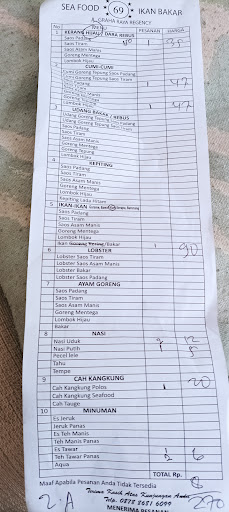 SEA FOOD 69 IKAN BAKAR
JL. GRAHA RAYA REGENCY
No MENU PESANAN HARGA
1 KERANG HIJAU / DARA REBUS 1
Saos Padang
Saos Tiram
Saos Asam Manis
Goreng Mentega
Lombok Hijau
2 CUMI-CUMI
Cumi Goreng Tepung Saos Padang 1 47
Cumi Goreng Tepung Saos Tiram
Saos Asam Manis
Goreng Mentega
Goreng Tepung
Lombok Hijau
3 UDANG BAKAR / REBUS 1 47
Udang Goreng Tepung Saos Padang
Udang Goreng Tepung Saos Tiram
Saos Tiram
Saos Asam Manis
Goreng Mentega
Goreng Tepung
Lombok Hijau
4 KEPITING
Saos Padang
Saos Tiram
Saos Asam Manis
Goreng Mentega
Lombok Hijau
Kepiting Lada Hitam
5 IKAN-IKAN
Saos Padang
Saos Tiram
Saos Asam Manis
Goreng Mentega
Lombok Hijau
Ikan Goreng Kering/Bakar 90
6 LOBSTER
Lobster Saos Tiram
Lobster Saos Asam Manis
Lobster Bakar
Lobster Saos Padang
7 AYAM GORENG
Saos Padang
Saos Tiram
Saos Asam Manis
Goreng Mentega
Lombok Hijau
Bakar
8 NASI
Nasi Uduk 2 12
Nasi Putih 1 5
Pecel lele
Tahu
Tempe
9 CAH KANGKUNG
Cah Kangkung Polos 1 20
Cah Kangkung Seafood
Cah Tauge
10 MINUMAN
Es Jeruk
Jeruk Panas
Es Teh Manis
Teh Manis Panas
Es Tawar 1
Teh Tawar Panas 2 6
Aqua
TOTAL Rp.
Maaf Apabila Pesanan Anda Tidak Tersedia
Terima Kasih Atas Kunjungan Anda
Telp. 0878 8681 6099
2.A MENERIMA PESANAN 270